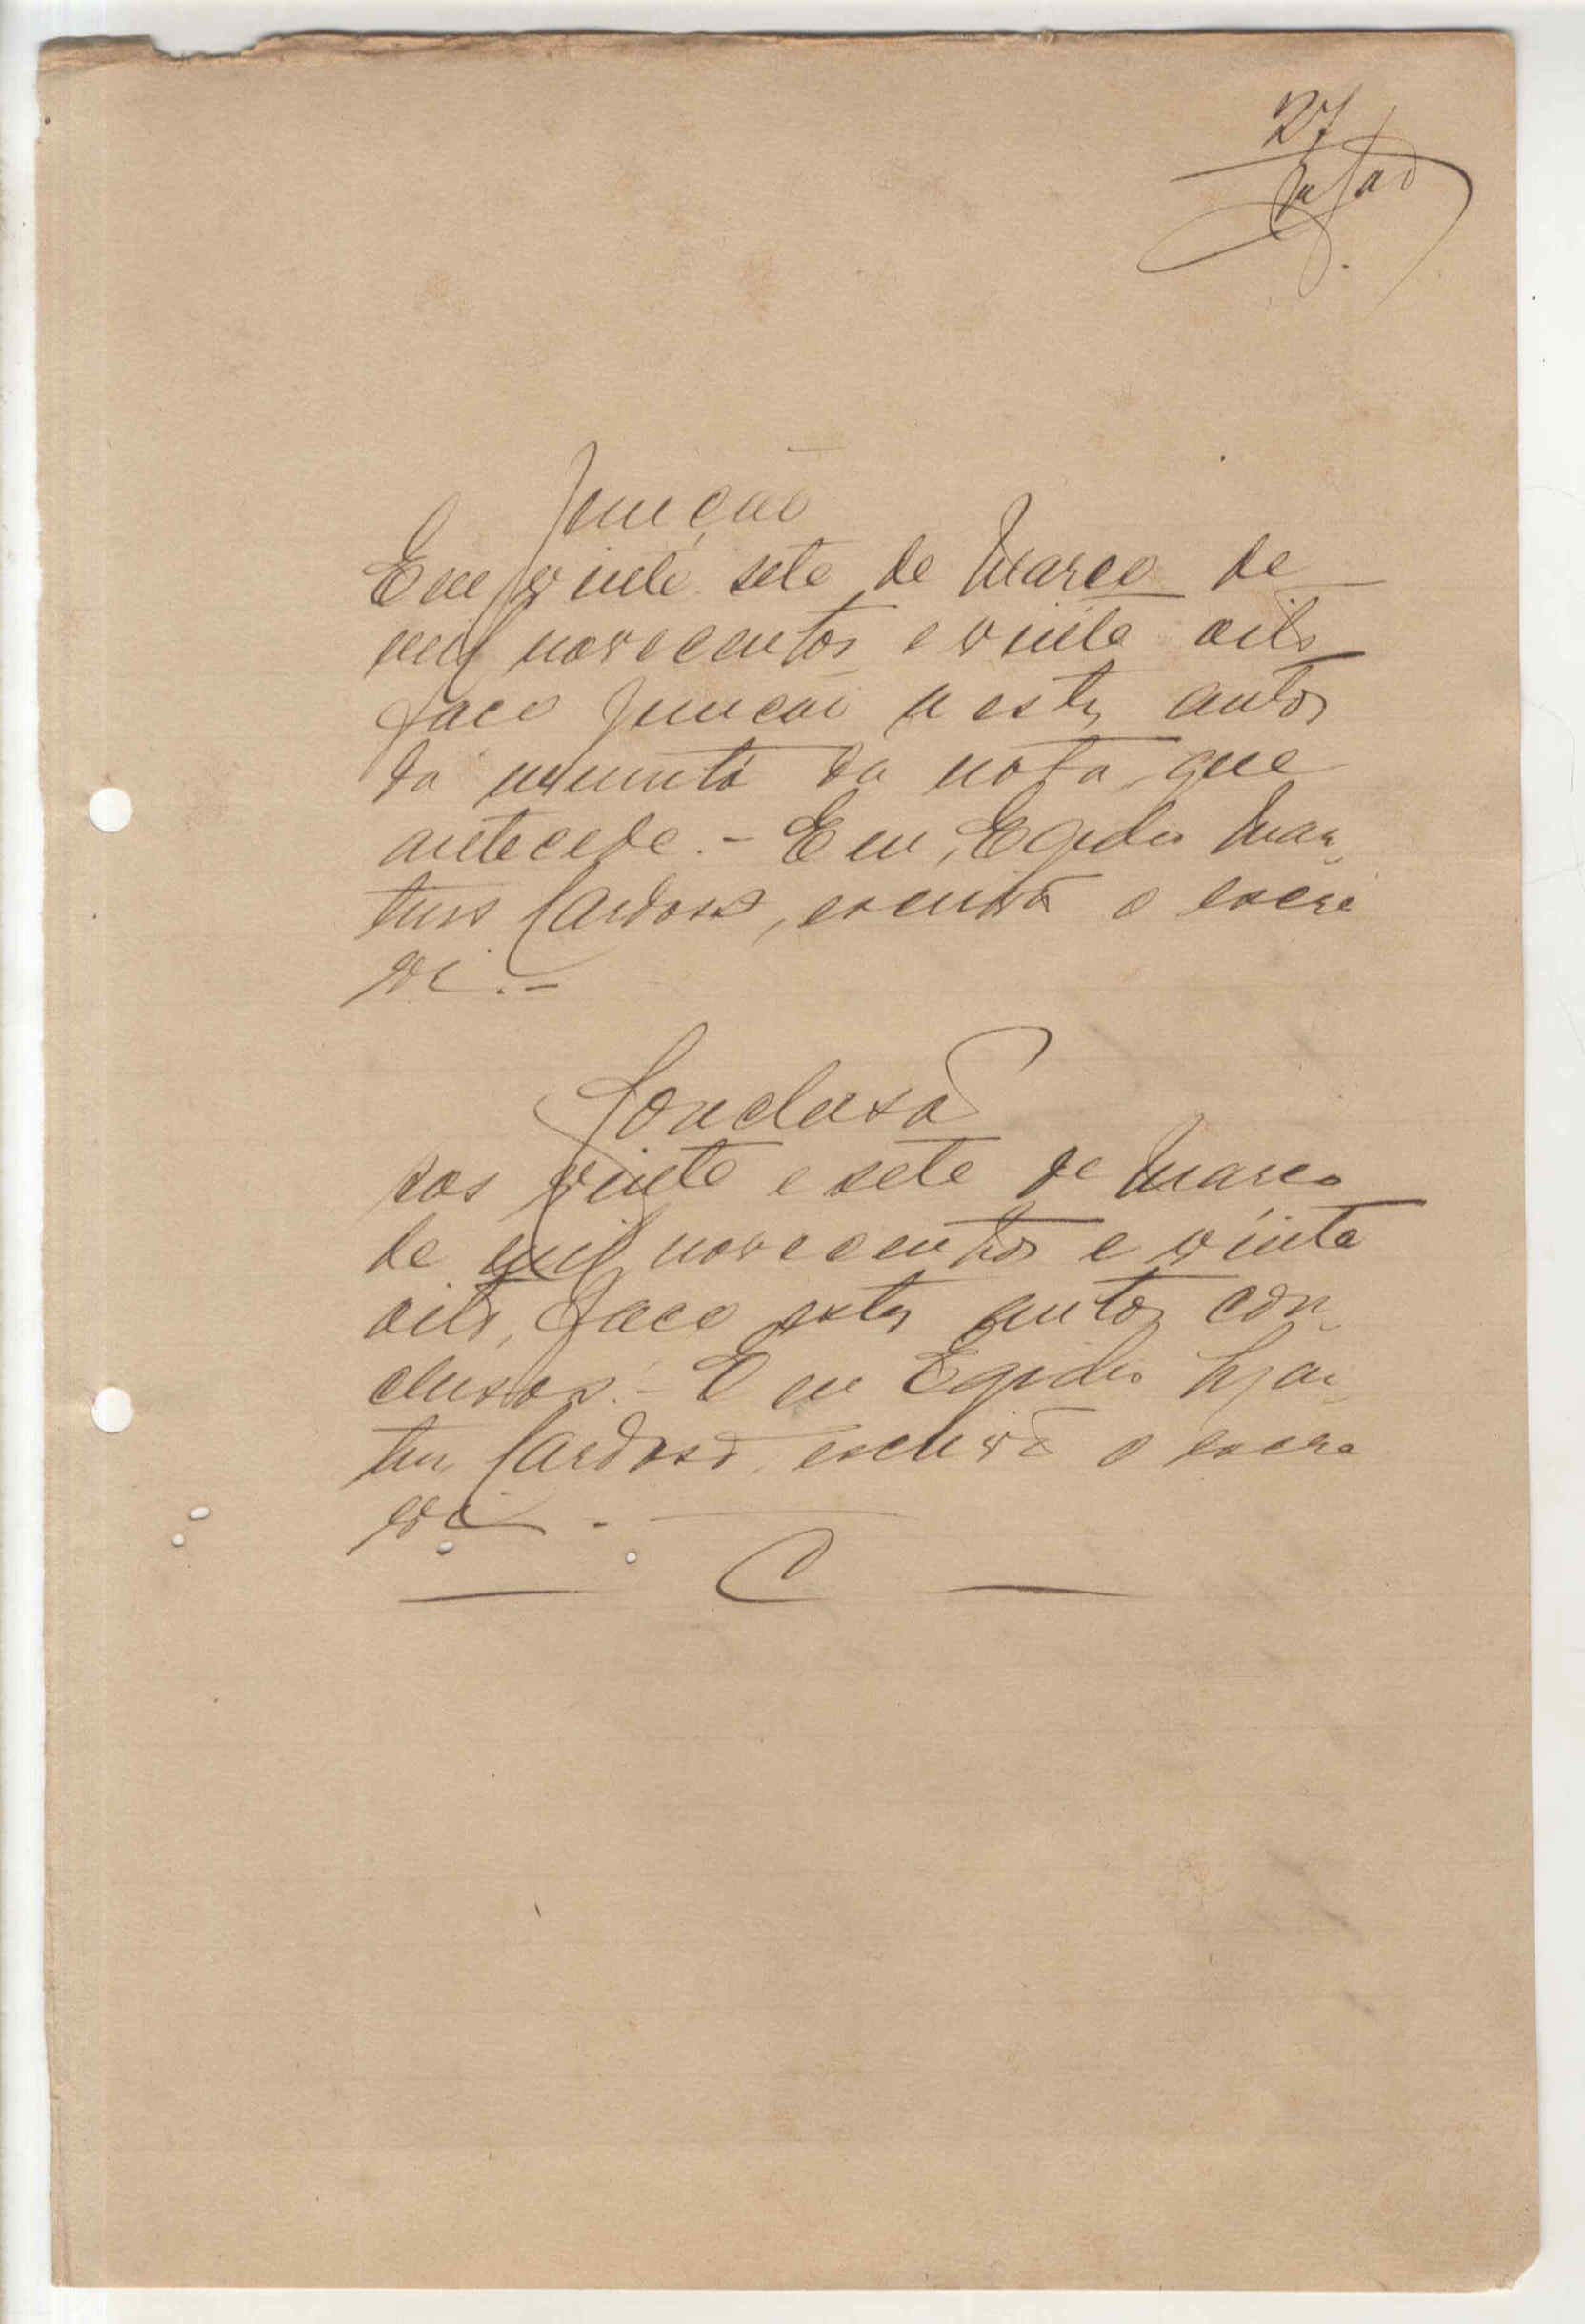 27
Junção
Em vinte sete de Março de
mil novecentos e vinte oito
faço junção a estes autos
da minuta da nota que
antecede. - E eu, Egidio Mar
tins Cardoso, escrivão o escre
vi. -
Conclusão
Aos vinte e sete de Março
de mil novecentos e vinte
oito, faço estes autos con
clusos. - E eu Egidio Mar
tins Cardoso, escrivão o escre
vi. -
C